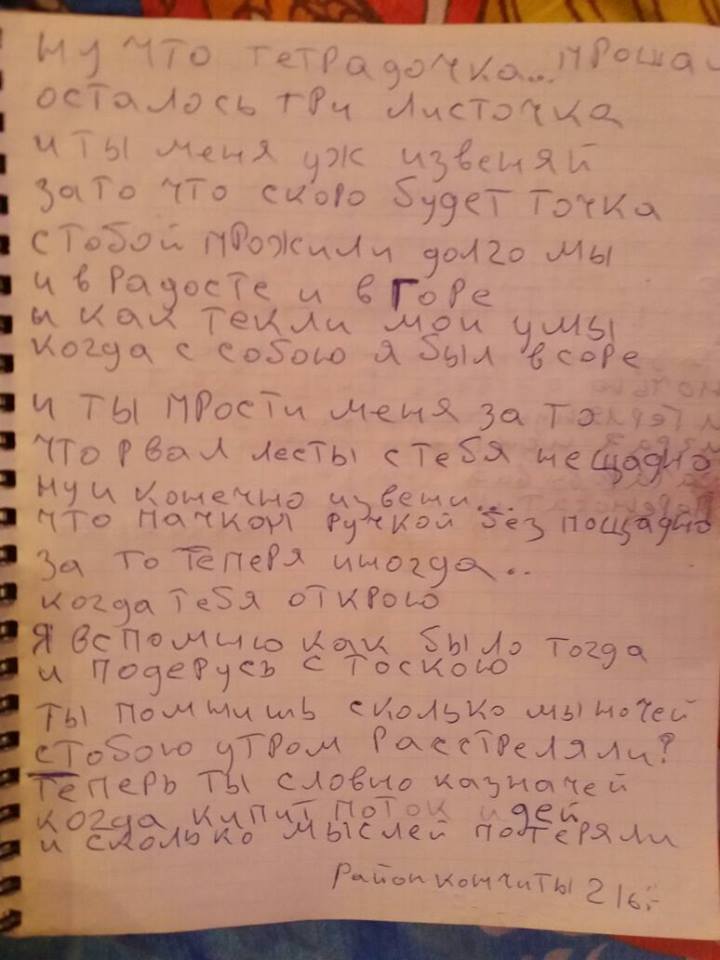 ну что тетрадочка... проща
осталось три листочка
и ты меня уж извеняй
за то что скоро будет точка
с тобой прожили долго мы
и в радосте и в горе
и как текли мои умы
когда с собою я был в соре
и ты прости меня за то
что рвал лесты с тебя нещадно
ну и конечно извени...
что пачкол ручкой без пощадно
за то теперя иногда..
когда тебя открою
я вспомню как было тогда
и подерусь с тоскою
ты помнишь сколько мы ночей
с тобою утром расстреляли?
теперь ты словно казначей
когда кипит поток идей
и сколько мыслей потеряли
район кончиты